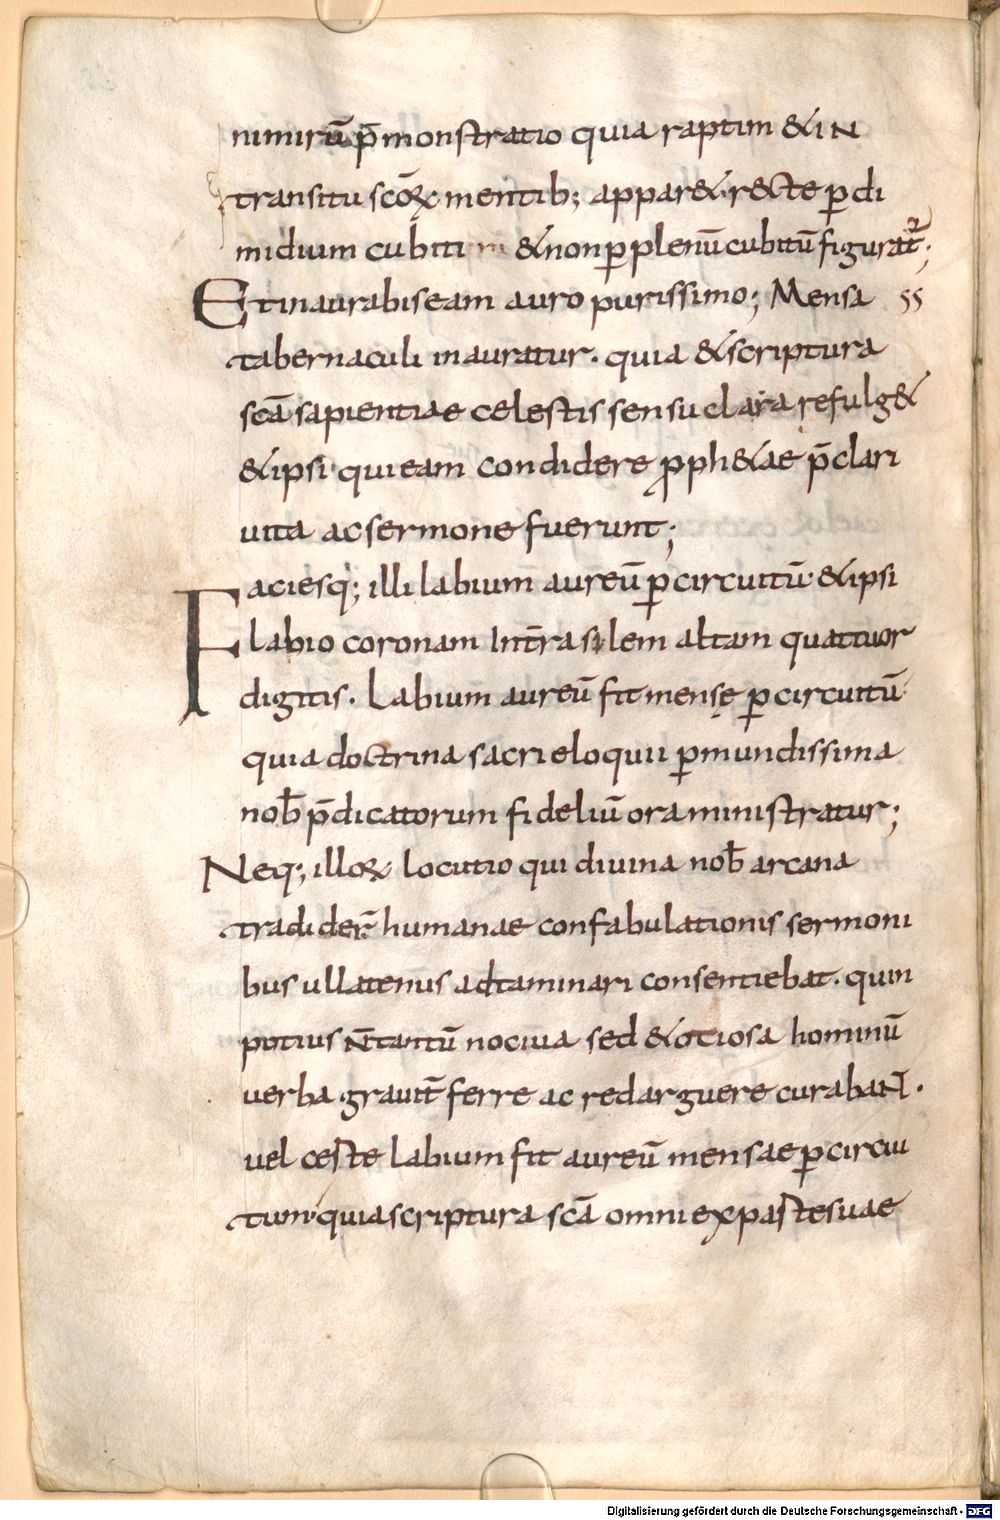 nimirū p̄monstratio quia raptim & IN
transitu scōꝝ mentib; appar&. recte ꝑ di
midium cubiti & non ꝑ plenū cubitū figurat̄;
Et inaurabis eam auro purissimo; Mensa 55
tabernaculi inauratur. quia & scriptura
scā sapientiae celestis sensu clara refulg&
& ipsi qui eam condidere pph&ae p̄clari
uita ac sermone fuerunt;
Faciesq; illi labium aureū ꝑ circuitū & ipsi
labio coronam Int̄rasilem altam quattuor
digitis. Labium aureū fit mensę ꝑ circuitū
quia doctrina sacri eloquii ꝑ mundissima
nob̄ p̄dicatorum fideliū ora ministratur;
Neq; illoꝝ locutio qui diuina nob̄ arcana
tradider̄ humanae confabulationis sermoni
bus ullatenus adtaminari consentiebat. quin
potius N̄ tantū nociua sed & otiosa hominū
uerba grauit̄ ferre ac redarguere curabaNT.
uel ceste labium fit aureū mensae ꝑ circui
tum quia scriptura scā omni ex paste suae
Digitalisierung gefördert durch die Deutsche Forschungsgemeinschaft - DFG